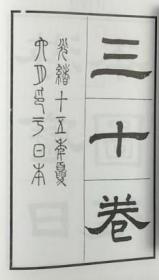 三十卷
光緒十五年夏
六月印于日本